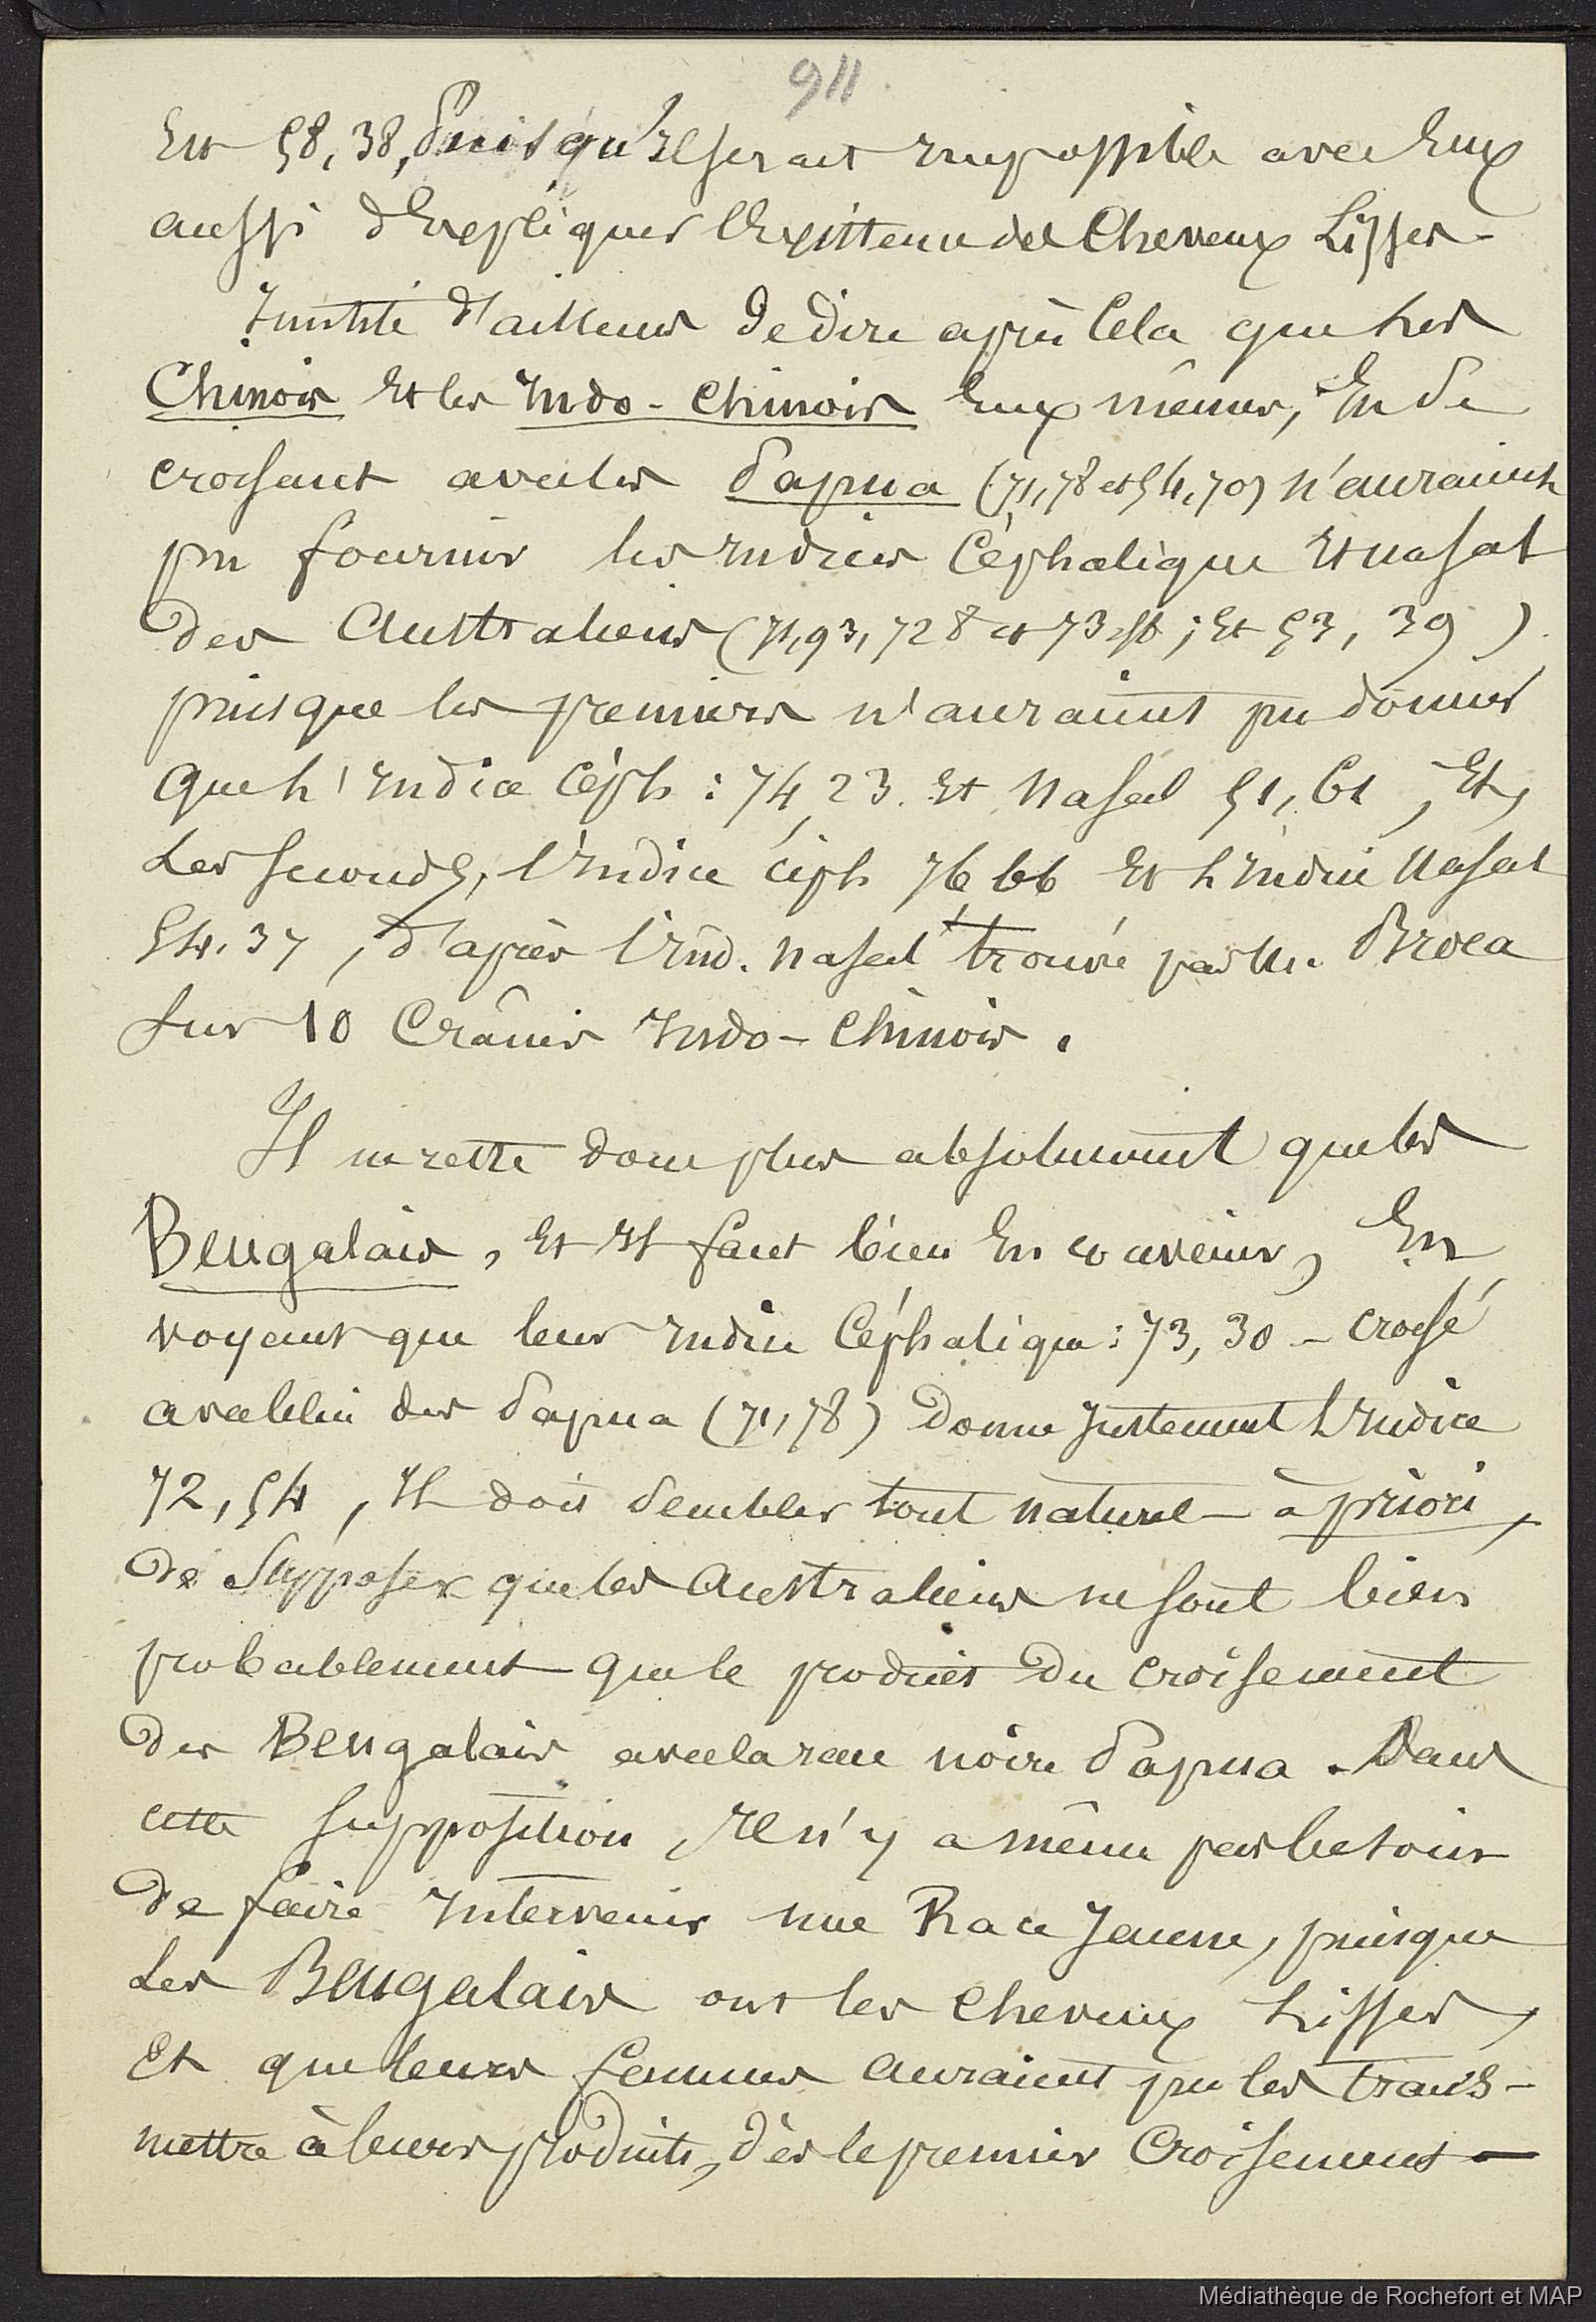 911
Est 58,38, Puisqu'il serait impossible avec Eux
aussi d'Expliquer l'Existence des Cheveux Lisses -
Inutile d'ailleurs de dire après Cela que Les
Chinois Et les Indo-Chinois Eux mêmes, En se
croisant avec les Papua (71,78 et 54,70) n'auraient
pu fournir les indices Céphalique Et nasal
des Australiens (71,93, 72 8 et 73 ; Et 53, 39)
puisque les premiers n'auraient pu donner
que l'indice Céph : 74,23. Et Nasal 51,61 ; Et,
Les Seconds, l'Indice céph 76 66 Et L'indice Nasal
54.37, d'après l'ind. nasal trouvé par Mr. Broca
Sur 10 Crânes Indo-Chinois.
Il ne reste donc plus absolument que les
Bengalais, Et Il faut bien En convenir, En
voyant que leur indice Céphalique : 73,30 - croisé
avec celui des Papua (71,78) Donne Justement L'indice
72,54, Il doit Sembler tout naturel - à priori,
de Supposer que les Australiens ne sont bien
probablement que le produit du croisement
des Bengalais avec la race noire Papua. Dans
cette supposition, Il n'y a même pas besoin
de faire Intervenir une Race Jaune, puisque
Les Bengalais ont les Cheveux Lisses,
Et que leurs femmes auraient pu les trans-
mettre à leurs produits, dès le premier Croisement -
Médiathèque de Rochefort et MAP